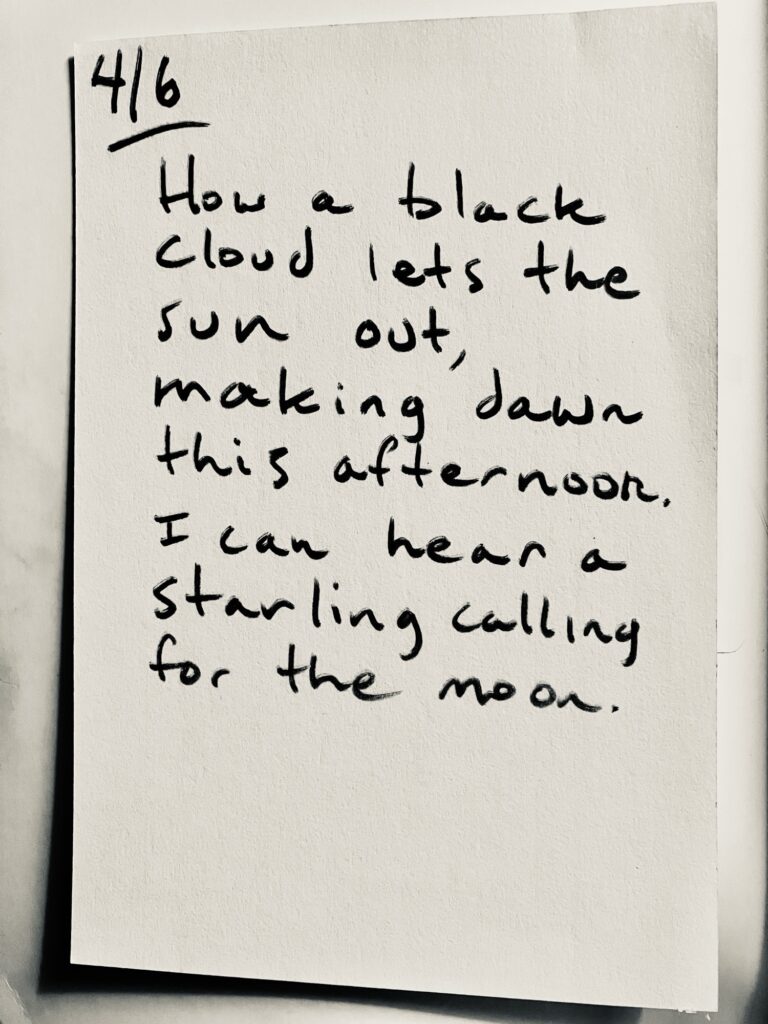 4/6
How a black
cloud lets the
sun out,
making dawn
this afternoon.
I can hear a
starling calling
for the moon.